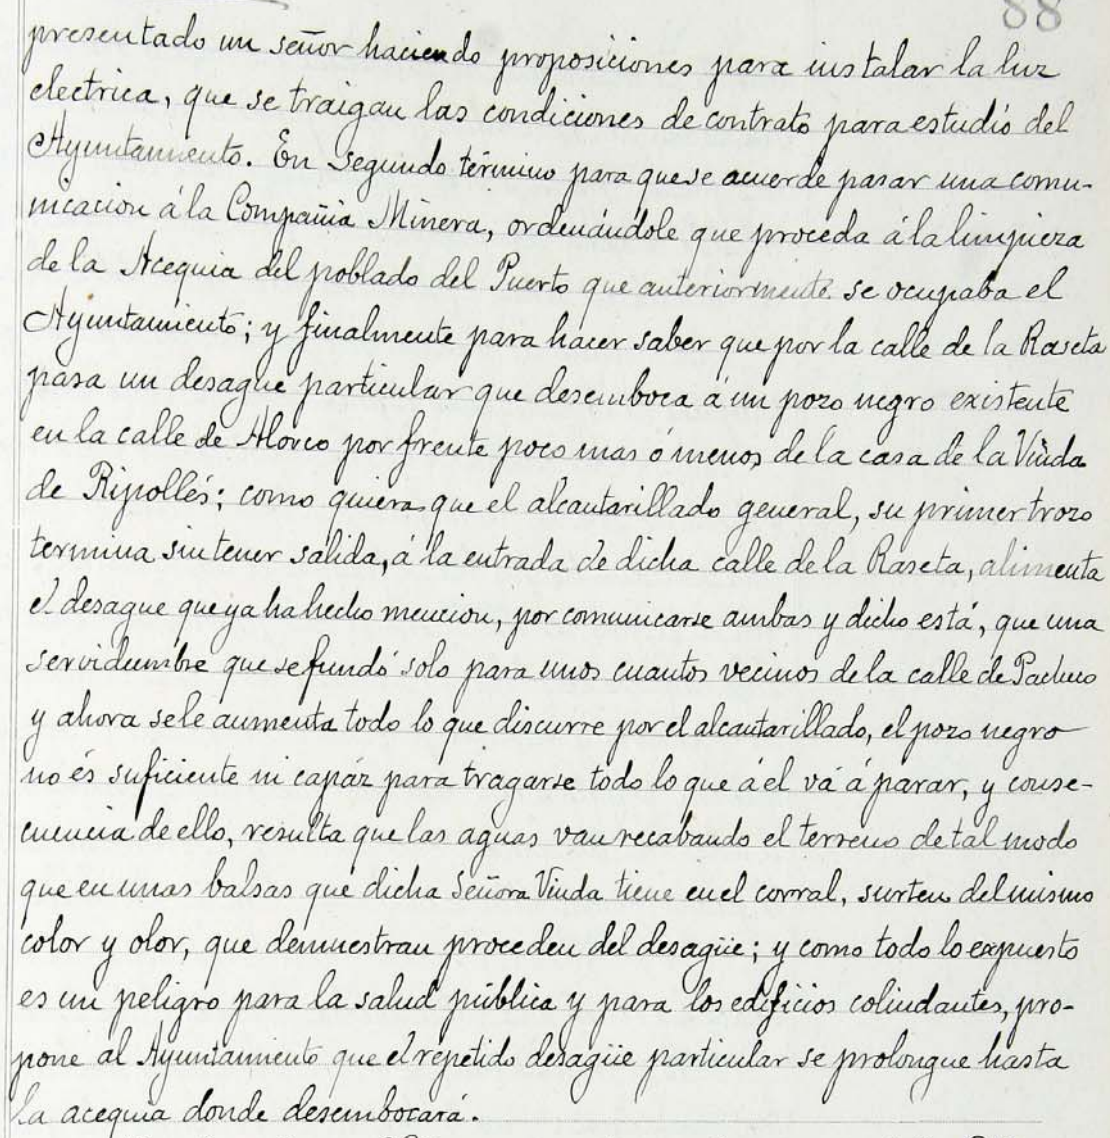 88
presentado un señor haciendo proposiciones para instalar la luz
electrica, que se traigan las condiciones de contrato para estudio del
Ayuntamiento. En segundo término para que se acuerde pasar una comu-
nicacion á la Compañia Minera, ordenándole que proceda á la limpieza
de la Acequia del poblado del Puerto que anteriormente se ocupaba el
Ayuntamiento; y finalmente para hacer saber que por la calle de la Raseta
pasa un desague particular que desemboca á un pozo negro existente
en la calle de Alorco por frente poco mas ó menos de la casa de la Viuda
de Ripollés; como quiera que el alcantarillado general, su primer trozo
termina sin tener salida, á la entrada de dicha calle de la Raseta, alimenta
el desague que ya ha hecho mencion, por comunicarse ambas y dicho está, que una
servidumbre que se fundó solo para unos cuantos vecinos de la calle de Pacheco
y ahora se le aumenta todo lo que discurre por el alcantarillado, el pozo negro
no és suficiente ni capáz para tragarse todo lo que á el vá á parar, y conse-
cuencia de ello, resulta que las aguas van recabando el terreno de tal modo
que en unas balsas que dicha Señora Viuda tiene en el corral, surten del mismo
color y olor, que demuestran proceden del desagüe; y como todo lo expuesto
es un peligro para la salud pública y para los edificios colindantes, pro-
pone al Ayuntamiento que el repetido desagüe particular se prolongue hasta
la acequia donde desembocará.